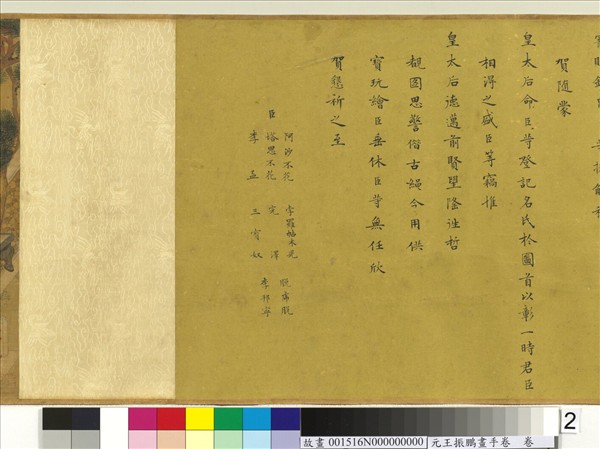 賀隨蒙
皇太后命臣等登記名氏於圖首以彰一時君臣
相得之盛臣等竊惟
皇太后德邁前賢聖隆往哲
觀圖思警循古繩今用供
寶玩繪臣垂休臣等無任欣
賀懇祈之至
阿沙不花 孛羅帖木兒 脫帖脫
臣 塔思不花 完澤 李邦寧
李孟 三寶奴
故畫 001516N000000000 元王振鵬畫手卷 卷
2